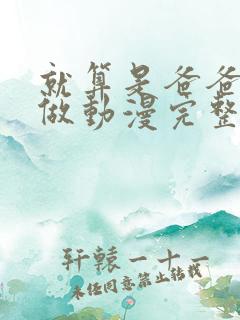 就算是爸爸
做動漫完整
轩辕一十一
未经同意禁止转载